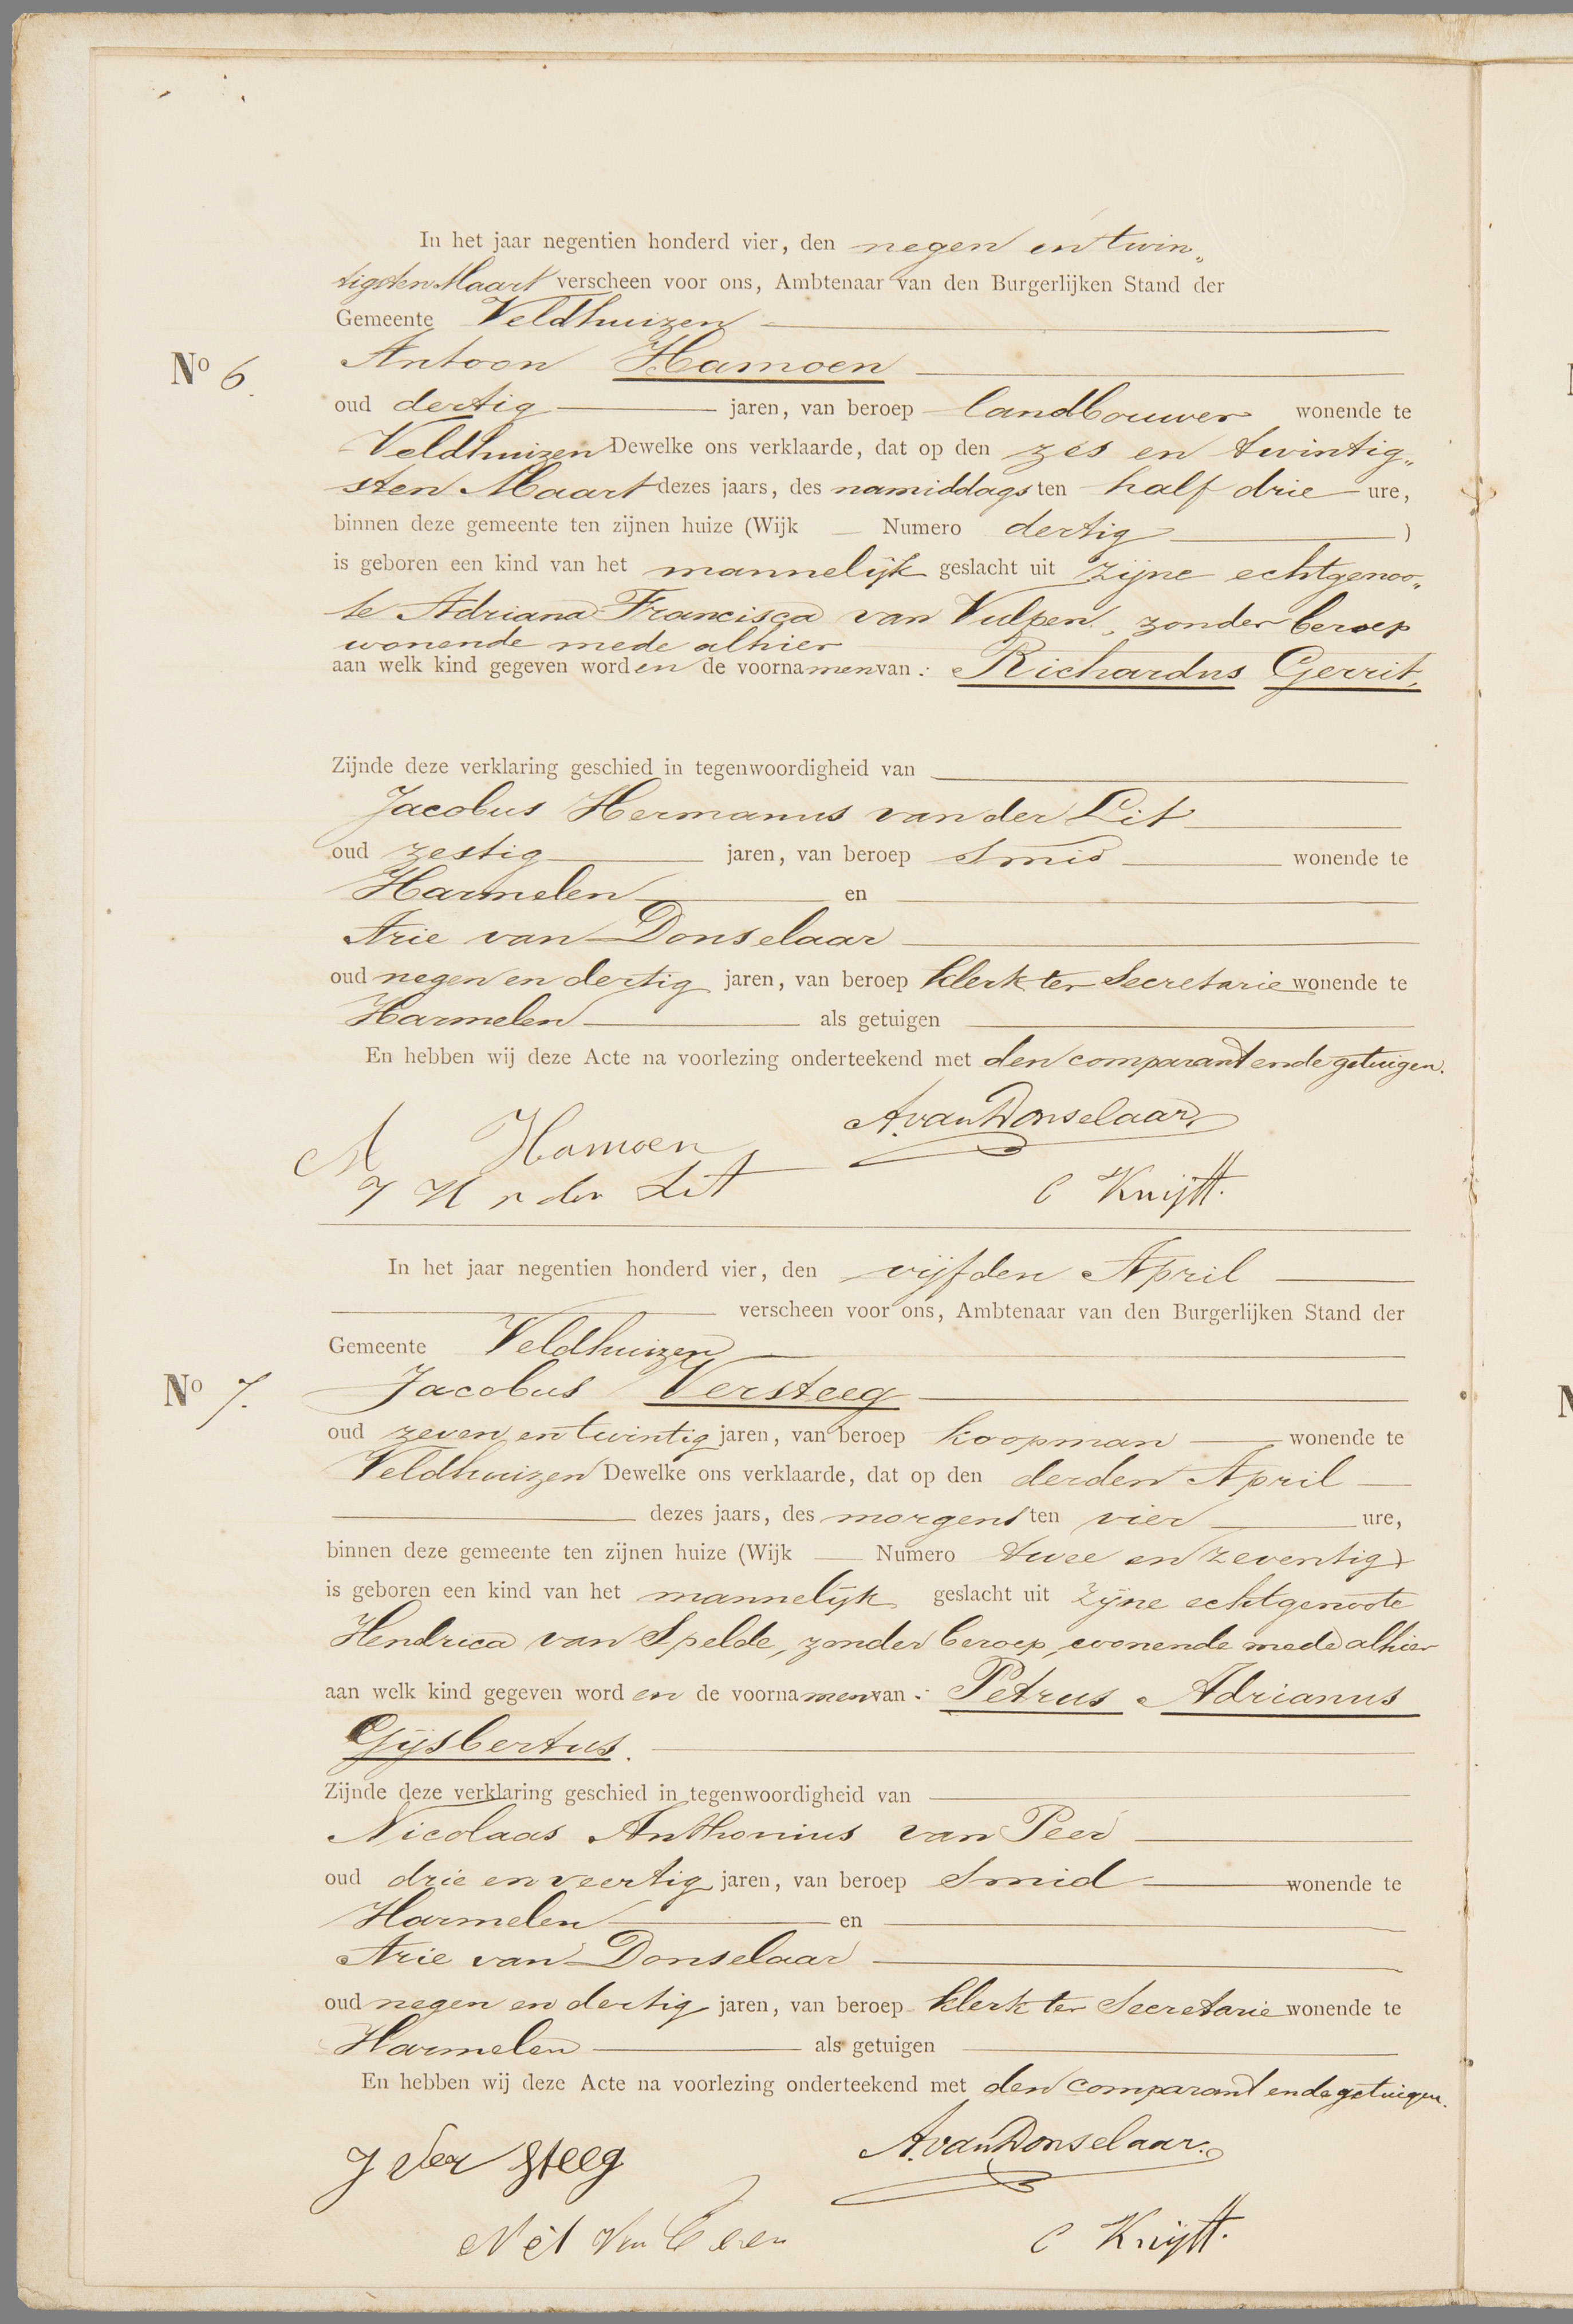 In het jaar negentien honderd vier, den negen en twin„
tigsten Maart verscheen voor ons, Ambtenaar van den Burgerlijken Stand der
Gemeente Veldhuizen
No 6.
Antoon Hamoen
oud dertig jaren, van beroep landbouwer wonende te
Veldhuizen Dewelke ons verklaarde, dat op den zes en twintig„
sten Maart dezes jaars, des namiddags ten half drie ure,
binnen deze gemeente ten zijnen huize (Wijk — Numero dertig )
is geboren een kind van het mannelijk geslacht uit zijne echtgenoo„
te Adriana Francisca van Vulpen, zonder beroep
wonende mede alhier
aan welk kind gegeven worden de voornamen van: Richardus Gerrit.
Zijnde deze verklaring geschied in tegenwoordigheid van
Jacobus Hermanus van der Lit
oud zestig jaren, van beroep Smid wonende te
Harmelen en
Arie van Donselaar
oud negen en dertig jaren, van beroep klerk ter Secretarie wonende te
Harmelen als getuigen
En hebben wij deze Acte na voorlezing onderteekend met den comparant en de getuigen.
A Hamoen A. van Donselaar
J H v der Lit C Knijff.
In het jaar negentien honderd vier, den vijfden April
verscheen voor ons, Ambtenaar van den Burgerlijken Stand der
Gemeente Veldhuizen
No 7.
Jacobus Versteeg
oud zeven en twintig jaren, van beroep koopman wonende te
Veldhuizen Dewelke ons verklaarde, dat op den derden April
dezes jaars, des morgens ten vier ure,
binnen deze gemeente ten zijnen huize (Wijk — Numero twee en zeventig)
is geboren een kind van het mannelijk geslacht uit zijne echtgenoote
Hendrica van Spelde, zonder beroep, wonende mede alhier
aan welk kind gegeven worden de voornamen van: Petrus Adrianus
Gijsbertus.
Zijnde deze verklaring geschied in tegenwoordigheid van
Nicolaas Anthonius van Peer
oud drie en veertig jaren, van beroep Smid wonende te
Harmelen en
Arie van Donselaar
oud negen en dertig jaren, van beroep klerk ter Secretarie wonende te
Harmelen als getuigen
En hebben wij deze Acte na voorlezing onderteekend met den comparant en de getuigen.
J Ver Steeg A. van Donselaar.
C Knijff.